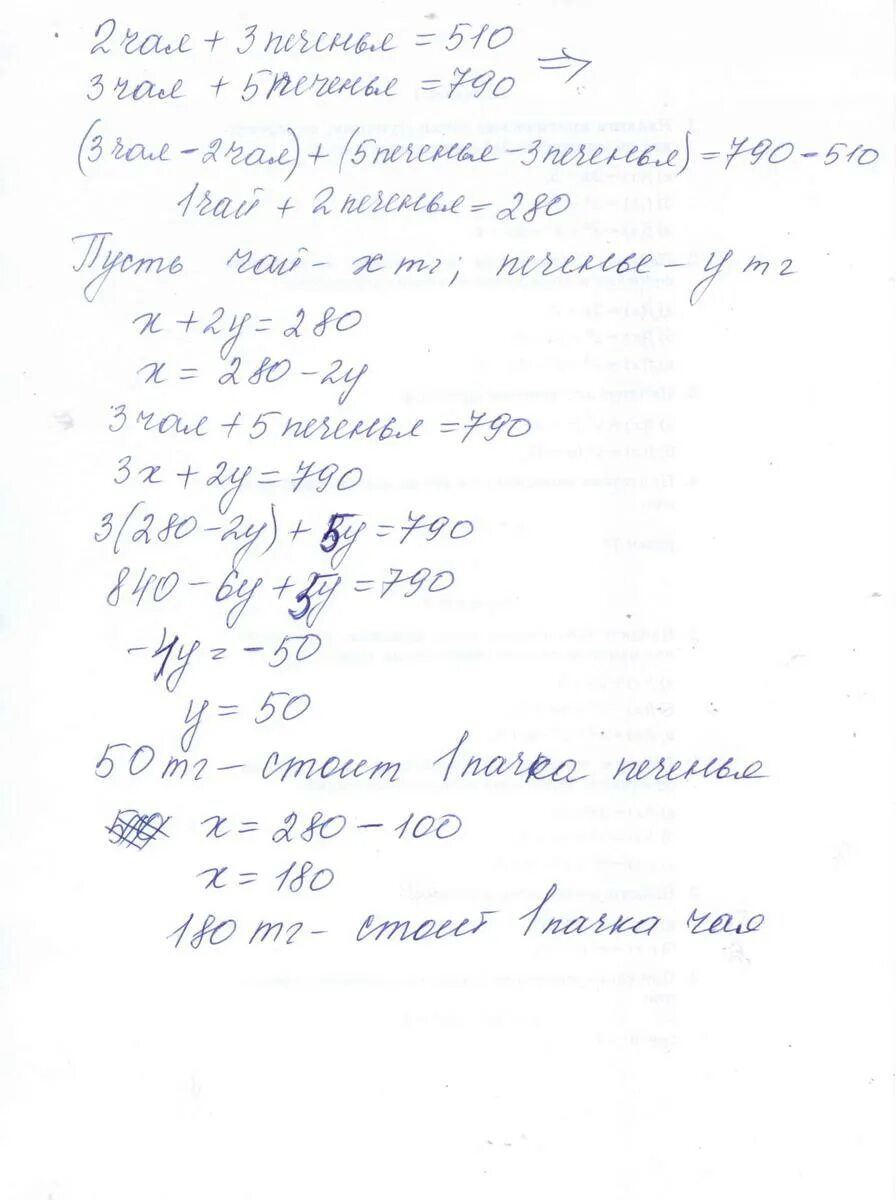 2 чая + 3 печенья = 510
3 чая + 5 печенья = 790 ⇒
(3 чая - 2 чая) + (5 печенья - 3 печенья) = 790 - 510
1 чай + 2 печенья = 280
Пусть чай - x тг; печенье - y тг
x + 2y = 280
x = 280 - 2y
3 чая + 5 печенья = 790
3x + 2y = 790
3(280 - 2y) + 5y = 790
840 - 6y + 5y = 790
-1y = -50
y = 50
50 тг - стоит 1 пачка печенья
x = 280 - 100
x = 180
180 тг - стоит 1 пачка чая